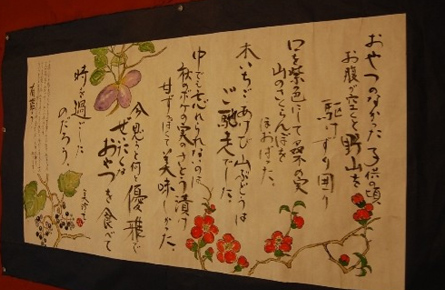 おやつのなかった子供の頃
お腹が空くと野山を
駆けずり回り
口を紫色にして桑の実
山のさくらんぼを
ほおばった
木いちごあけび山ぶどうは
ご馳走でした。
中でも忘れられないのは
秋のボケの実のさとう漬け
甘ずっぱくて美味しかった。
今思うと何と優雅で
ぜいたくな
おやつを食べて
時を過した
のだろう。